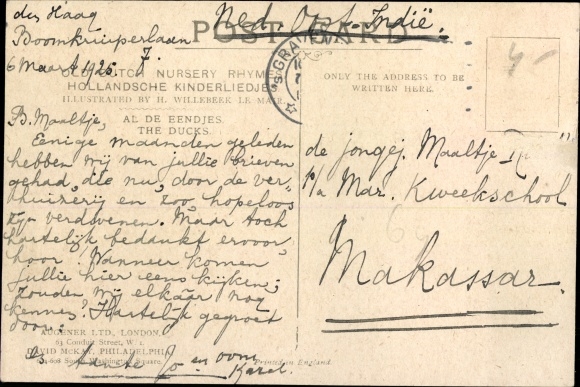 den Haag
Boomkruiperlaan 7.
6 Maart 1926.
Ned. Oost-Indië.
POST CARD.
OLD DUTCH NURSERY RHYMES
HOLLANDSCHE KINDERLIEDJES
ILLUSTRATED BY H. WILLEBEEK LE MAIR
AL DE EENDJES.
THE DUCKS.
B. Maaltje,
Eenige maanden geleden
hebben wij van jullie brieven
gehad, die nu, door de ver-
huizerij en zoo, hopeloos
zijn verdwenen. Maar toch
hartelijk bedankt ervoor,
hoor! Wanneer komen
jullie hier eens kijken;
zouden wij elkaar nog
kennen? Hartelijk gegroet
door:
tante Jo en oom
Karel.
AUGENER LTD., LONDON,
63 Conduit Street, W. 1.
DAVID McKAY, PHILADELPHIA,
604-608 South Washington Square.
Printed in England.
'S GRAVEN
ONLY THE ADDRESS TO BE
WRITTEN HERE.
4
de jongej. Maaltje
p/a Mar. Kweekschool
Makassar.